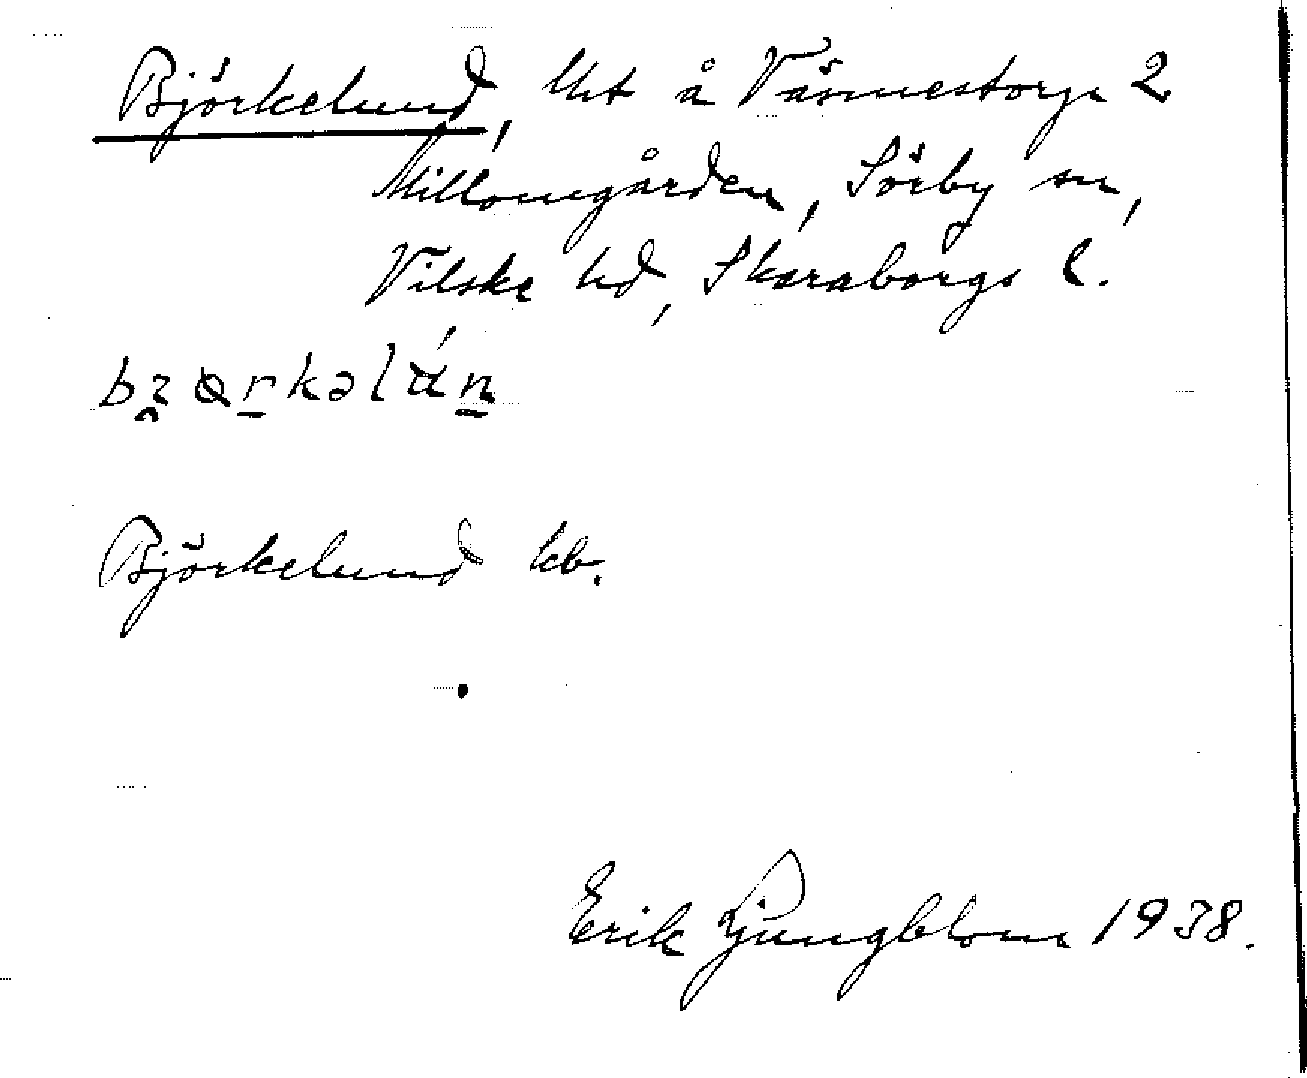 Björkelund, lht å Vännestorp 2
Mellomgården, Sörby sn,
Vilske hd, Skaraborgs l.
Björkelund kb.
Erik Ljungblom 1938.